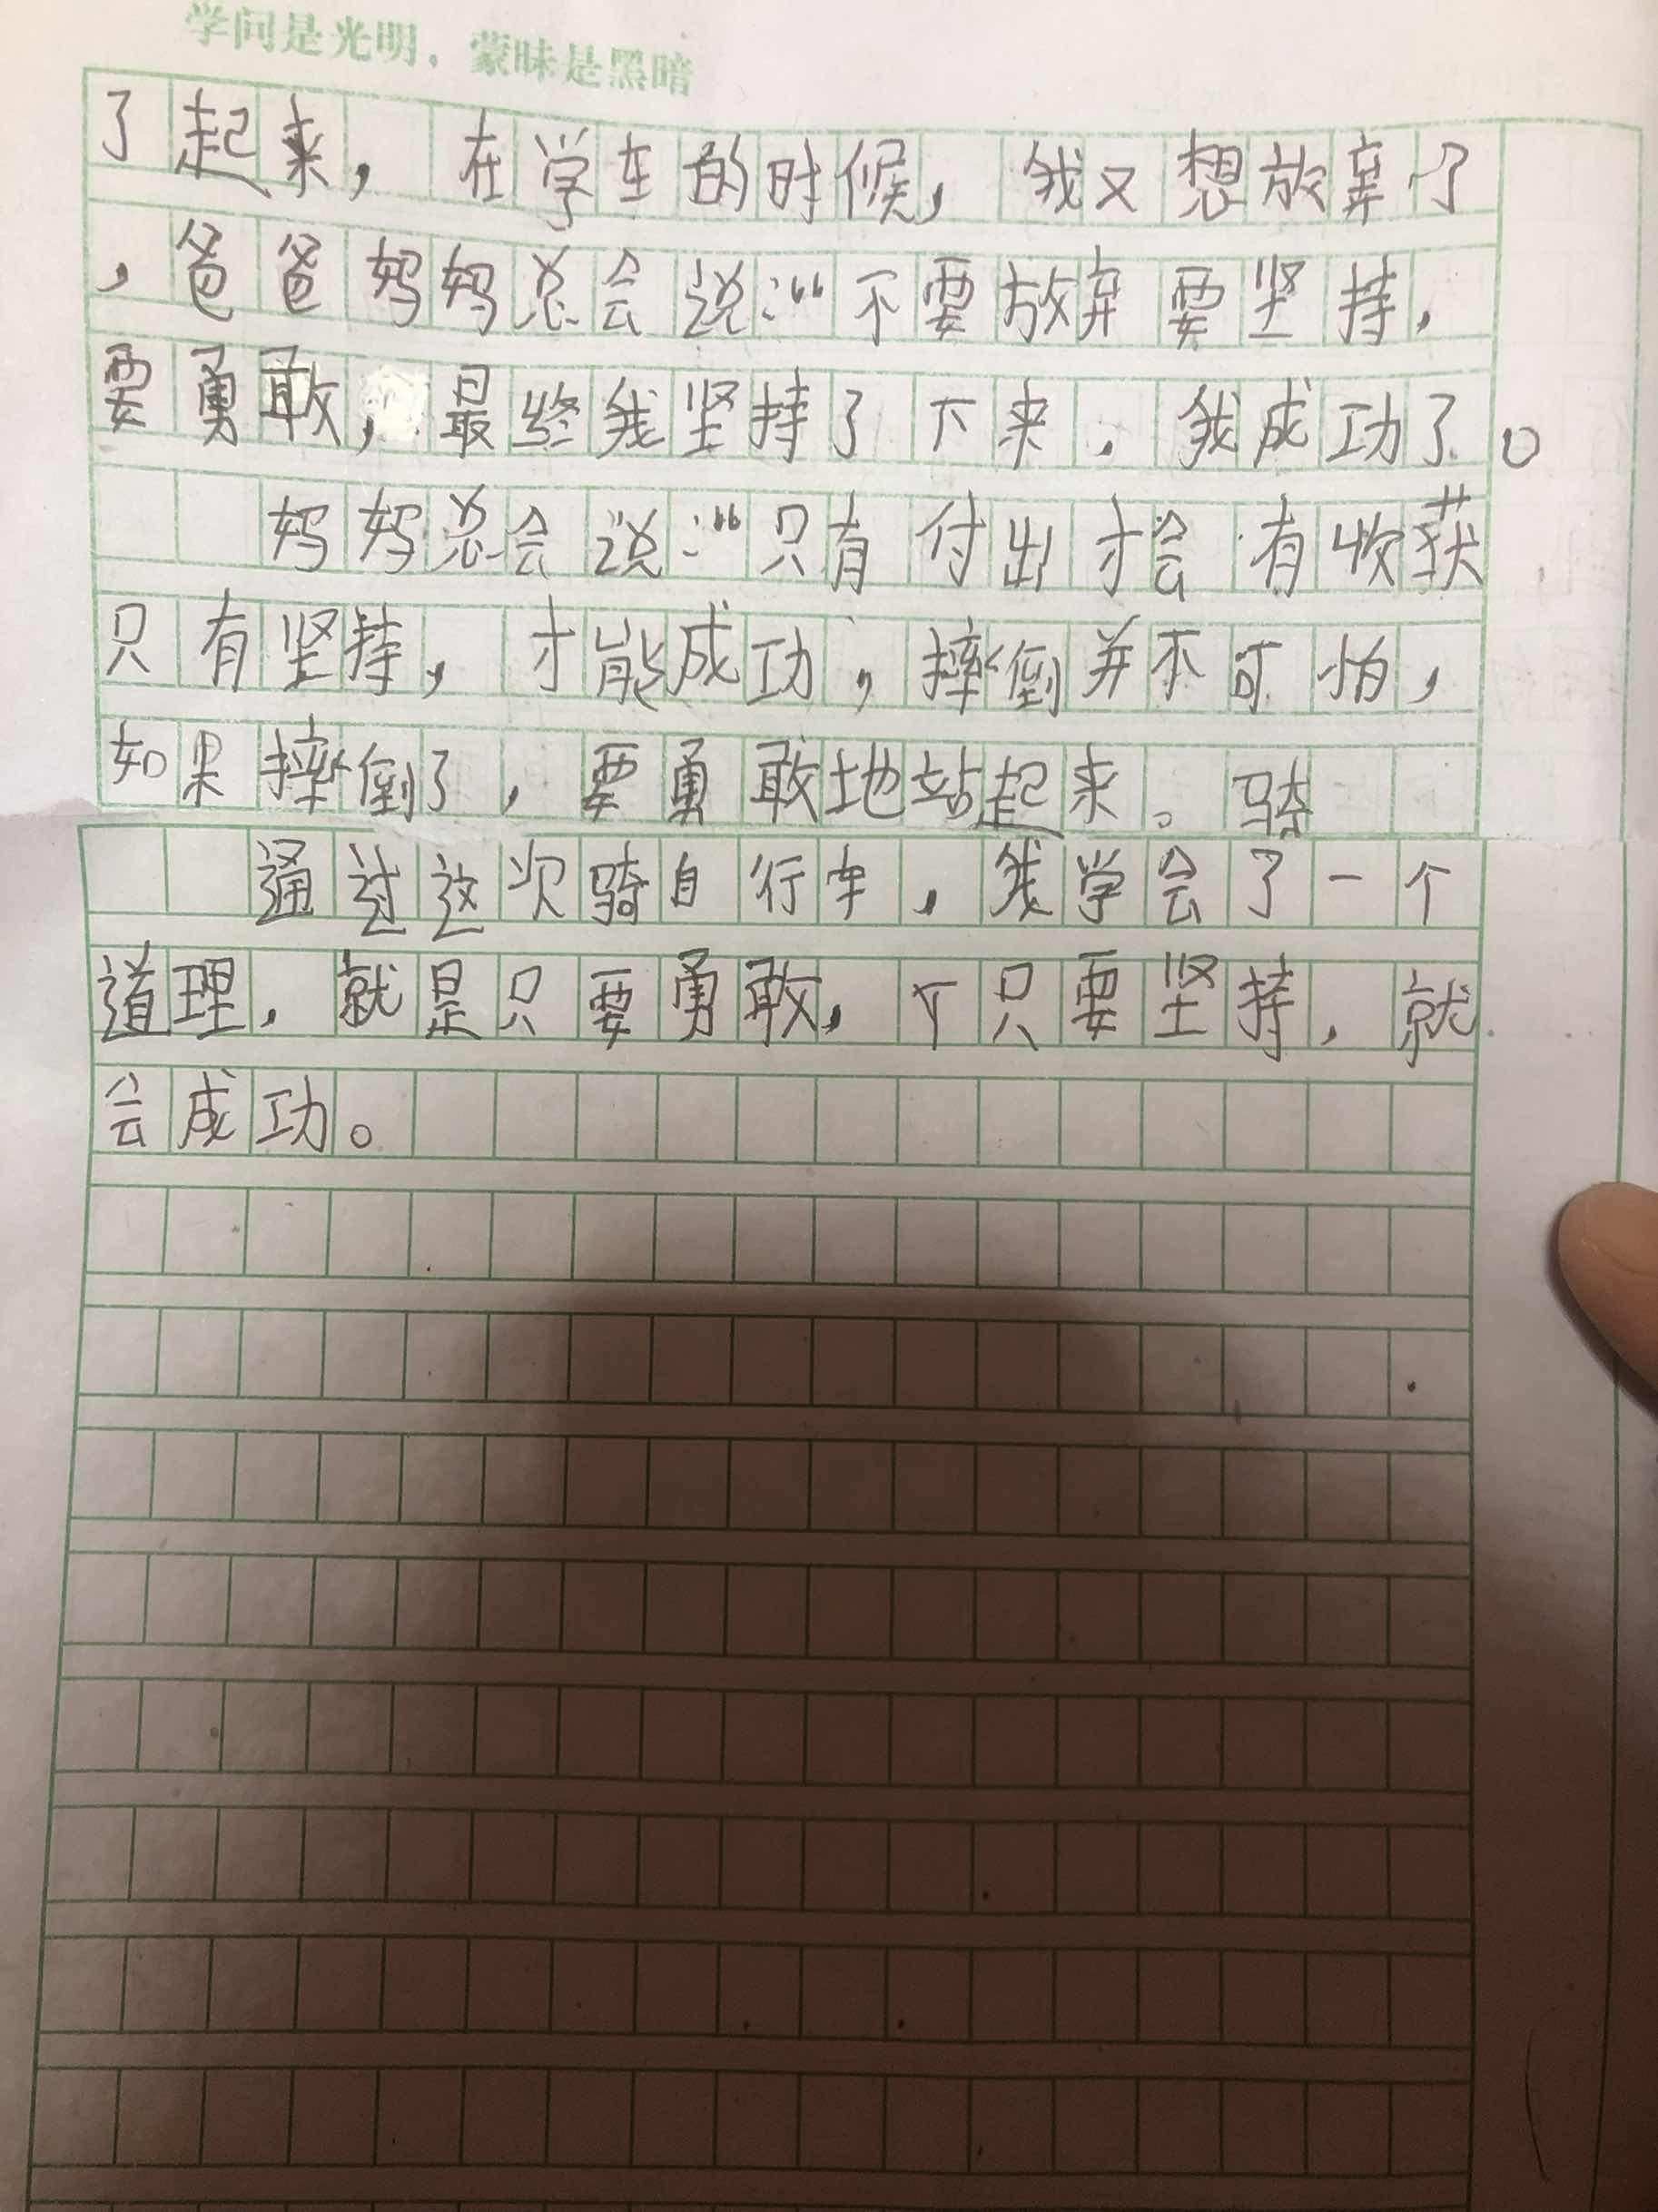 学问是光明，蒙昧是黑暗
了起来，在学车的时候，我又想放弃了
，爸爸妈妈总会说：“不要放弃要坚持，
要勇敢，最终我坚持了下来，我成功了。
妈妈总会说：“只有付出才会有收获
只有坚持，才能成功，摔倒并不可怕，
如果摔倒了，要勇敢地站起来。骑
通过这次骑自行车，我学会了一个
道理，就是只要勇敢，个只要坚持，就
会成功。